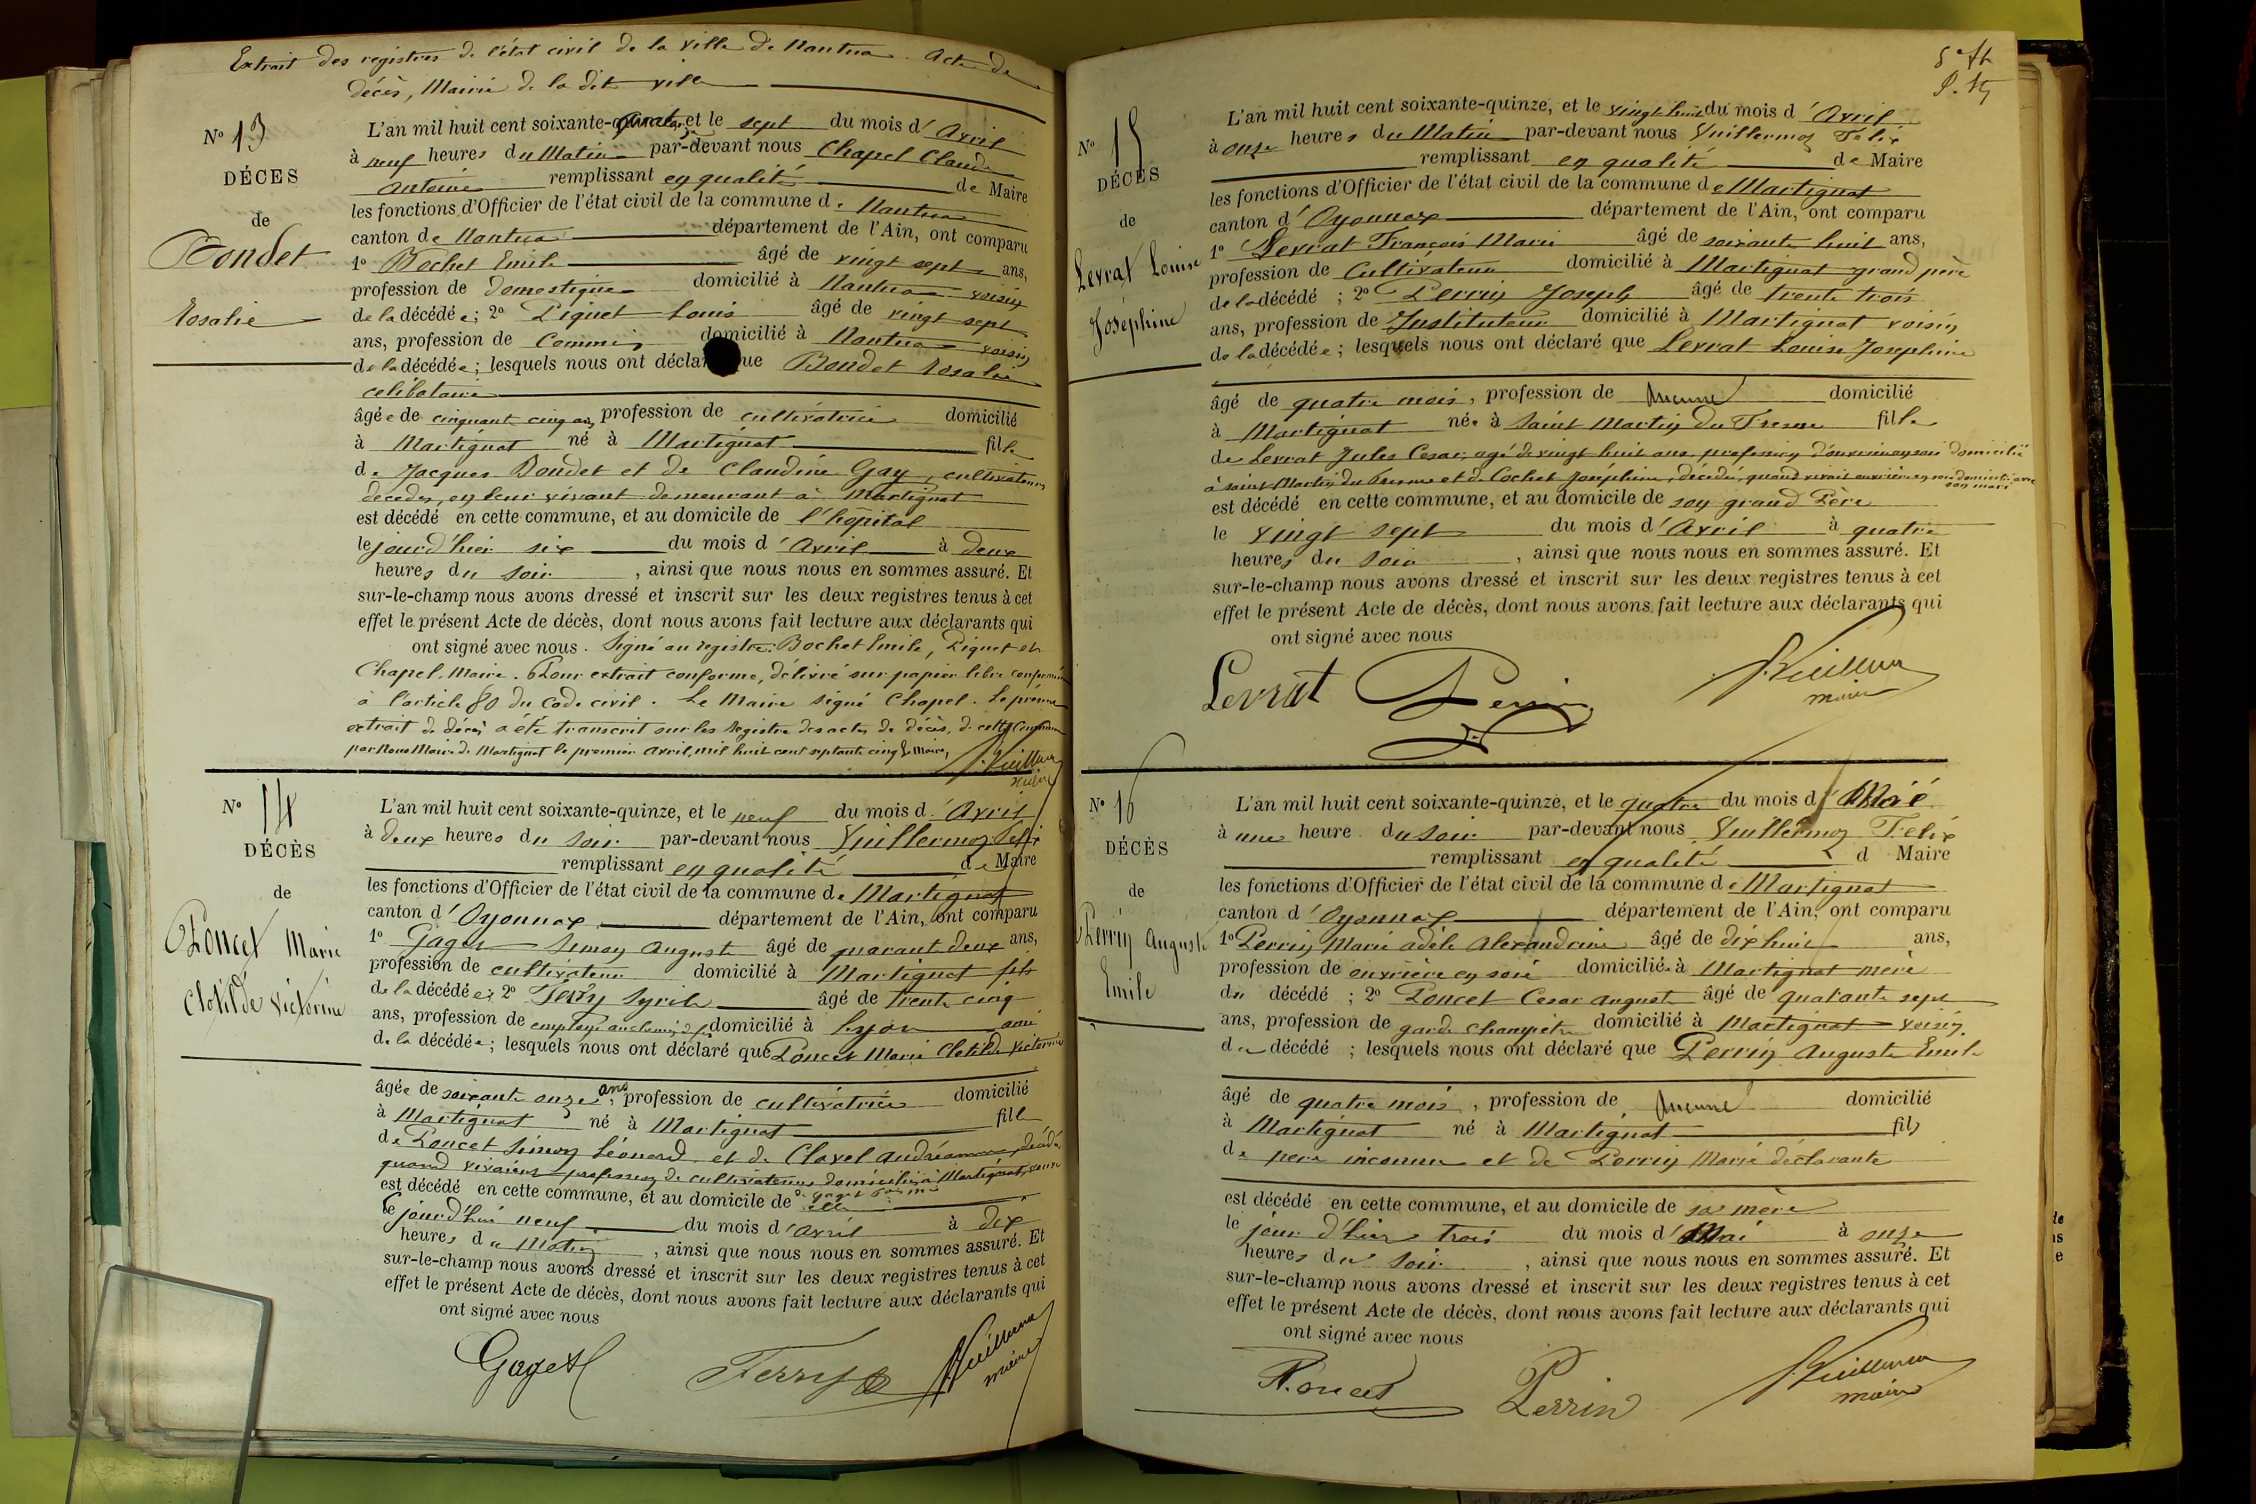 Extrait des registres de l'état civil de la ville de Nantua. Acte de
décès, Mairie de la dite ville
N° 13
DÉCES
de
Bondet
Rosalie
L'an mil huit cent soixante-quatorze, et le sept du mois d'Avril
à neuf heures du Matin par-devant nous Chapel Claude
Antoine remplissant en qualité de Maire
les fonctions d'Officier de l'état civil de la commune de Nantua
canton de Nantua département de l'Ain, ont comparu
1° Bochet Emile âgé de vingt sept ans,
profession de domestique domicilié à Nantua voisin
de la décédée; 2° Piquet Louis âgé de vingt sept
ans, profession de Commis domicilié à Nantua voisin
de la décédée; lesquels nous ont déclaré que Bondet Rosalie
celibataire
âgée de cinquant cinq ans profession de cultivatrice domicilié
à Martignat né à Martignat fille
de Jacques Bondet et de Claudine Gay, cultivateurs
décédés, en leur vivant demeurant à Martignat
est décédé en cette commune, et au domicile de l'hôpital
le jourd'hier six du mois d'Avril à deux
heures du soir, ainsi que nous nous en sommes assuré. Et
sur-le-champ nous avons dressé et inscrit sur les deux registres tenus à cet
effet le présent Acte de décès, dont nous avons fait lecture aux déclarants qui
ont signé avec nous. Signé au registre: Bochet Emile, Piquet et
Chapel, Maire. Pour extrait conforme, délivré sur papier libre conformément
à l'article 80 du Code civil. Le Maire signé Chapel. Le présent
extrait de décès a été transcrit sur les registre des actes de décès, de cette Commune
par Nous Maire de Martignat le premier avril, mil huit cent septante cinq Le Maire,
F. Vuillermoz
maire
N° 14
DÉCÈS
de
Poncet Marie
Clotilde Victorine
L'an mil huit cent soixante-quinze, et le neuf du mois d'Avril
à deux heures du soir par-devant nous Vuillermoz Félix
remplissant en qualité de Maire
les fonctions d'Officier de l'état civil de la commune de Martignat
canton d'Oyonnax département de l'Ain, ont comparu
1° Gaget Simon Auguste âgé de quarant deux ans,
profession de cultivateur domicilié à Martignat fils
de la décédée; 2° Ferry Syrile âgé de trente cinq
ans, profession de employé au chemin de fer domicilié à Lyon ami
de la décédée; lesquels nous ont déclaré que Poncet Marie Clotilde Victorine
âgée de soixante onze ans, profession de cultivatrice domicilié
à Martignat né à Martignat fille
de Poncet Simon Léonard et de Clavel Andréanne, décédés
quand vivaient profession de cultivateurs domiciliés à Martignat, veuve
de Gaget
est décédé en cette commune, et au domicile de elle
le jourd'hui neuf du mois d'avril à dix
heures du Matin, ainsi que nous nous en sommes assuré. Et
sur-le-champ nous avons dressé et inscrit sur les deux registres tenus à cet
effet le présent Acte de décès, dont nous avons fait lecture aux déclarants qui
ont signé avec nous
Gaget Ferry F. Vuillermoz
maire
N° 15
DÉCÈS
de
Levrat Louise
Joséphine
L'an mil huit cent soixante-quinze, et le vingt huit du mois d'Avril
à onze heures du Matin par-devant nous Vuillermoz Félix
remplissant en qualité de Maire
les fonctions d'Officier de l'état civil de la commune de Martignat
canton d'Oyonnax département de l'Ain, ont comparu
1° Levrat François Marie âgé de soixante huit ans,
profession de Cultivateur domicilié à Martignat grand père
de la décédé; 2° Perrin Joseph âgé de trente trois
ans, profession de Instituteur domicilié à Martignat voisin
de la décédée; lesquels nous ont déclaré que Levrat Louise Joséphine
âgé de quatre mois, profession de Aucune domicilié
à Martignat née à Saint Martin du Fresne fille
de Levrat Jules Cesar, agé de vingt huit ans, profession d'ouvrier en soie domicilié
à Saint Martin du Fresne et de Cochet Joséphine, décédée, quand vivait ouvrière en soie domicilié avec
son mari
est décédé en cette commune, et au domicile de son grand Père
le vingt sept du mois d'Avril à quatre
heures du soir, ainsi que nous nous en sommes assuré. Et
sur-le-champ nous avons dressé et inscrit sur les deux registres tenus à cet
effet le présent Acte de décès, dont nous avons fait lecture aux déclarants qui
ont signé avec nous
Levrat Perrin F. Vuillermoz
maire
N° 16
DÉCÈS
de
Perrin Auguste
Emile
L'an mil huit cent soixante-quinze, et le quatre du mois d Mai
à une heure du soir par-devant nous Vuillermoz Félix
remplissant en qualité d Maire
les fonctions d'Officier de l'état civil de la commune de Martignat
canton d'Oyonnax département de l'Ain, ont comparu
1° Perrin Marie adèle Alexandrine âgé de dix huit ans,
profession de ouvrière en soie domiciliée à Martignat mère
du décédé; 2° Poncet Cesar Auguste âgé de quarante sept
ans, profession de garde champêtre domicilié à Martignat voisin
du décédé; lesquels nous ont déclaré que Perrin Auguste Emile
âgé de quatre mois, profession de Aucune domicilié
à Martignat né à Martignat fils
de père inconnu et de Perrin Marie déclarante
est décédé en cette commune, et au domicile de sa mère
le jour d'hier trois du mois d Mai à onze
heures du soir, ainsi que nous nous en sommes assuré. Et
sur-le-champ nous avons dressé et inscrit sur les deux registres tenus à cet
effet le présent Acte de décès, dont nous avons fait lecture aux déclarants qui
ont signé avec nous
Poncet Perrin F. Vuillermoz
maire